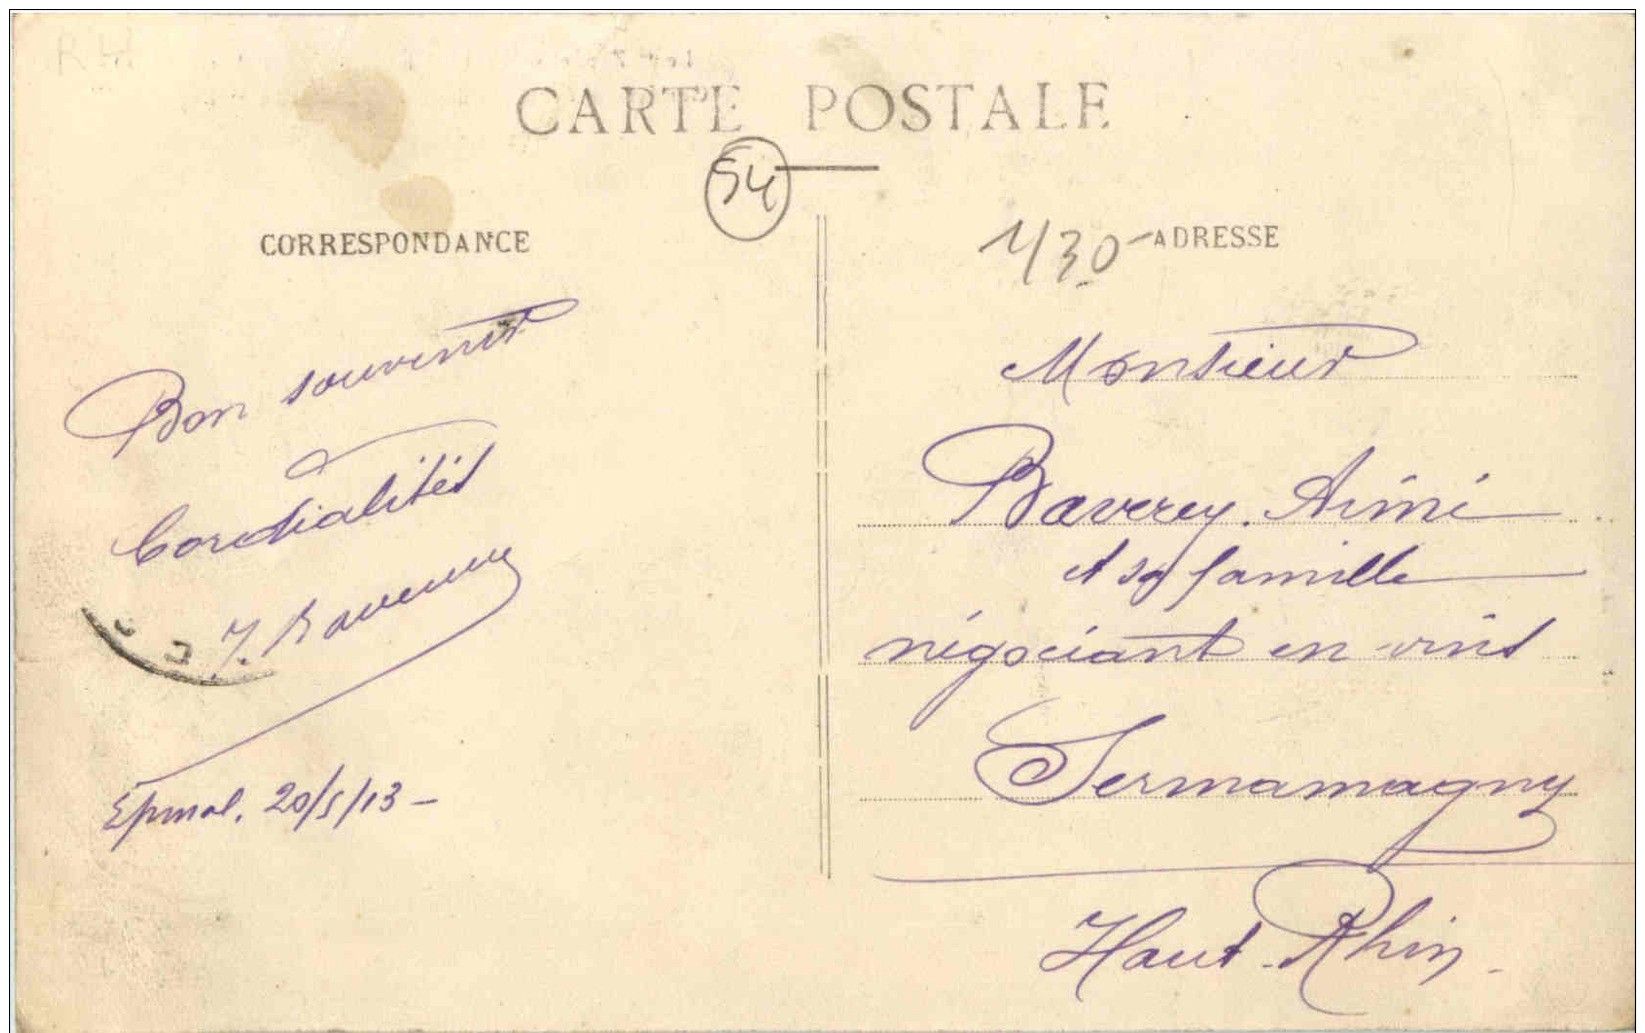 CARTE POSTALE
54
CORRESPONDANCE
Bon souvenir
Cordialités
Epinal. 20/5/13 -
1/30
ADRESSE
Monsieur
Baverey. Aimé
et sa famille
négociant en vins
Sermamagny
Haut-Rhin.